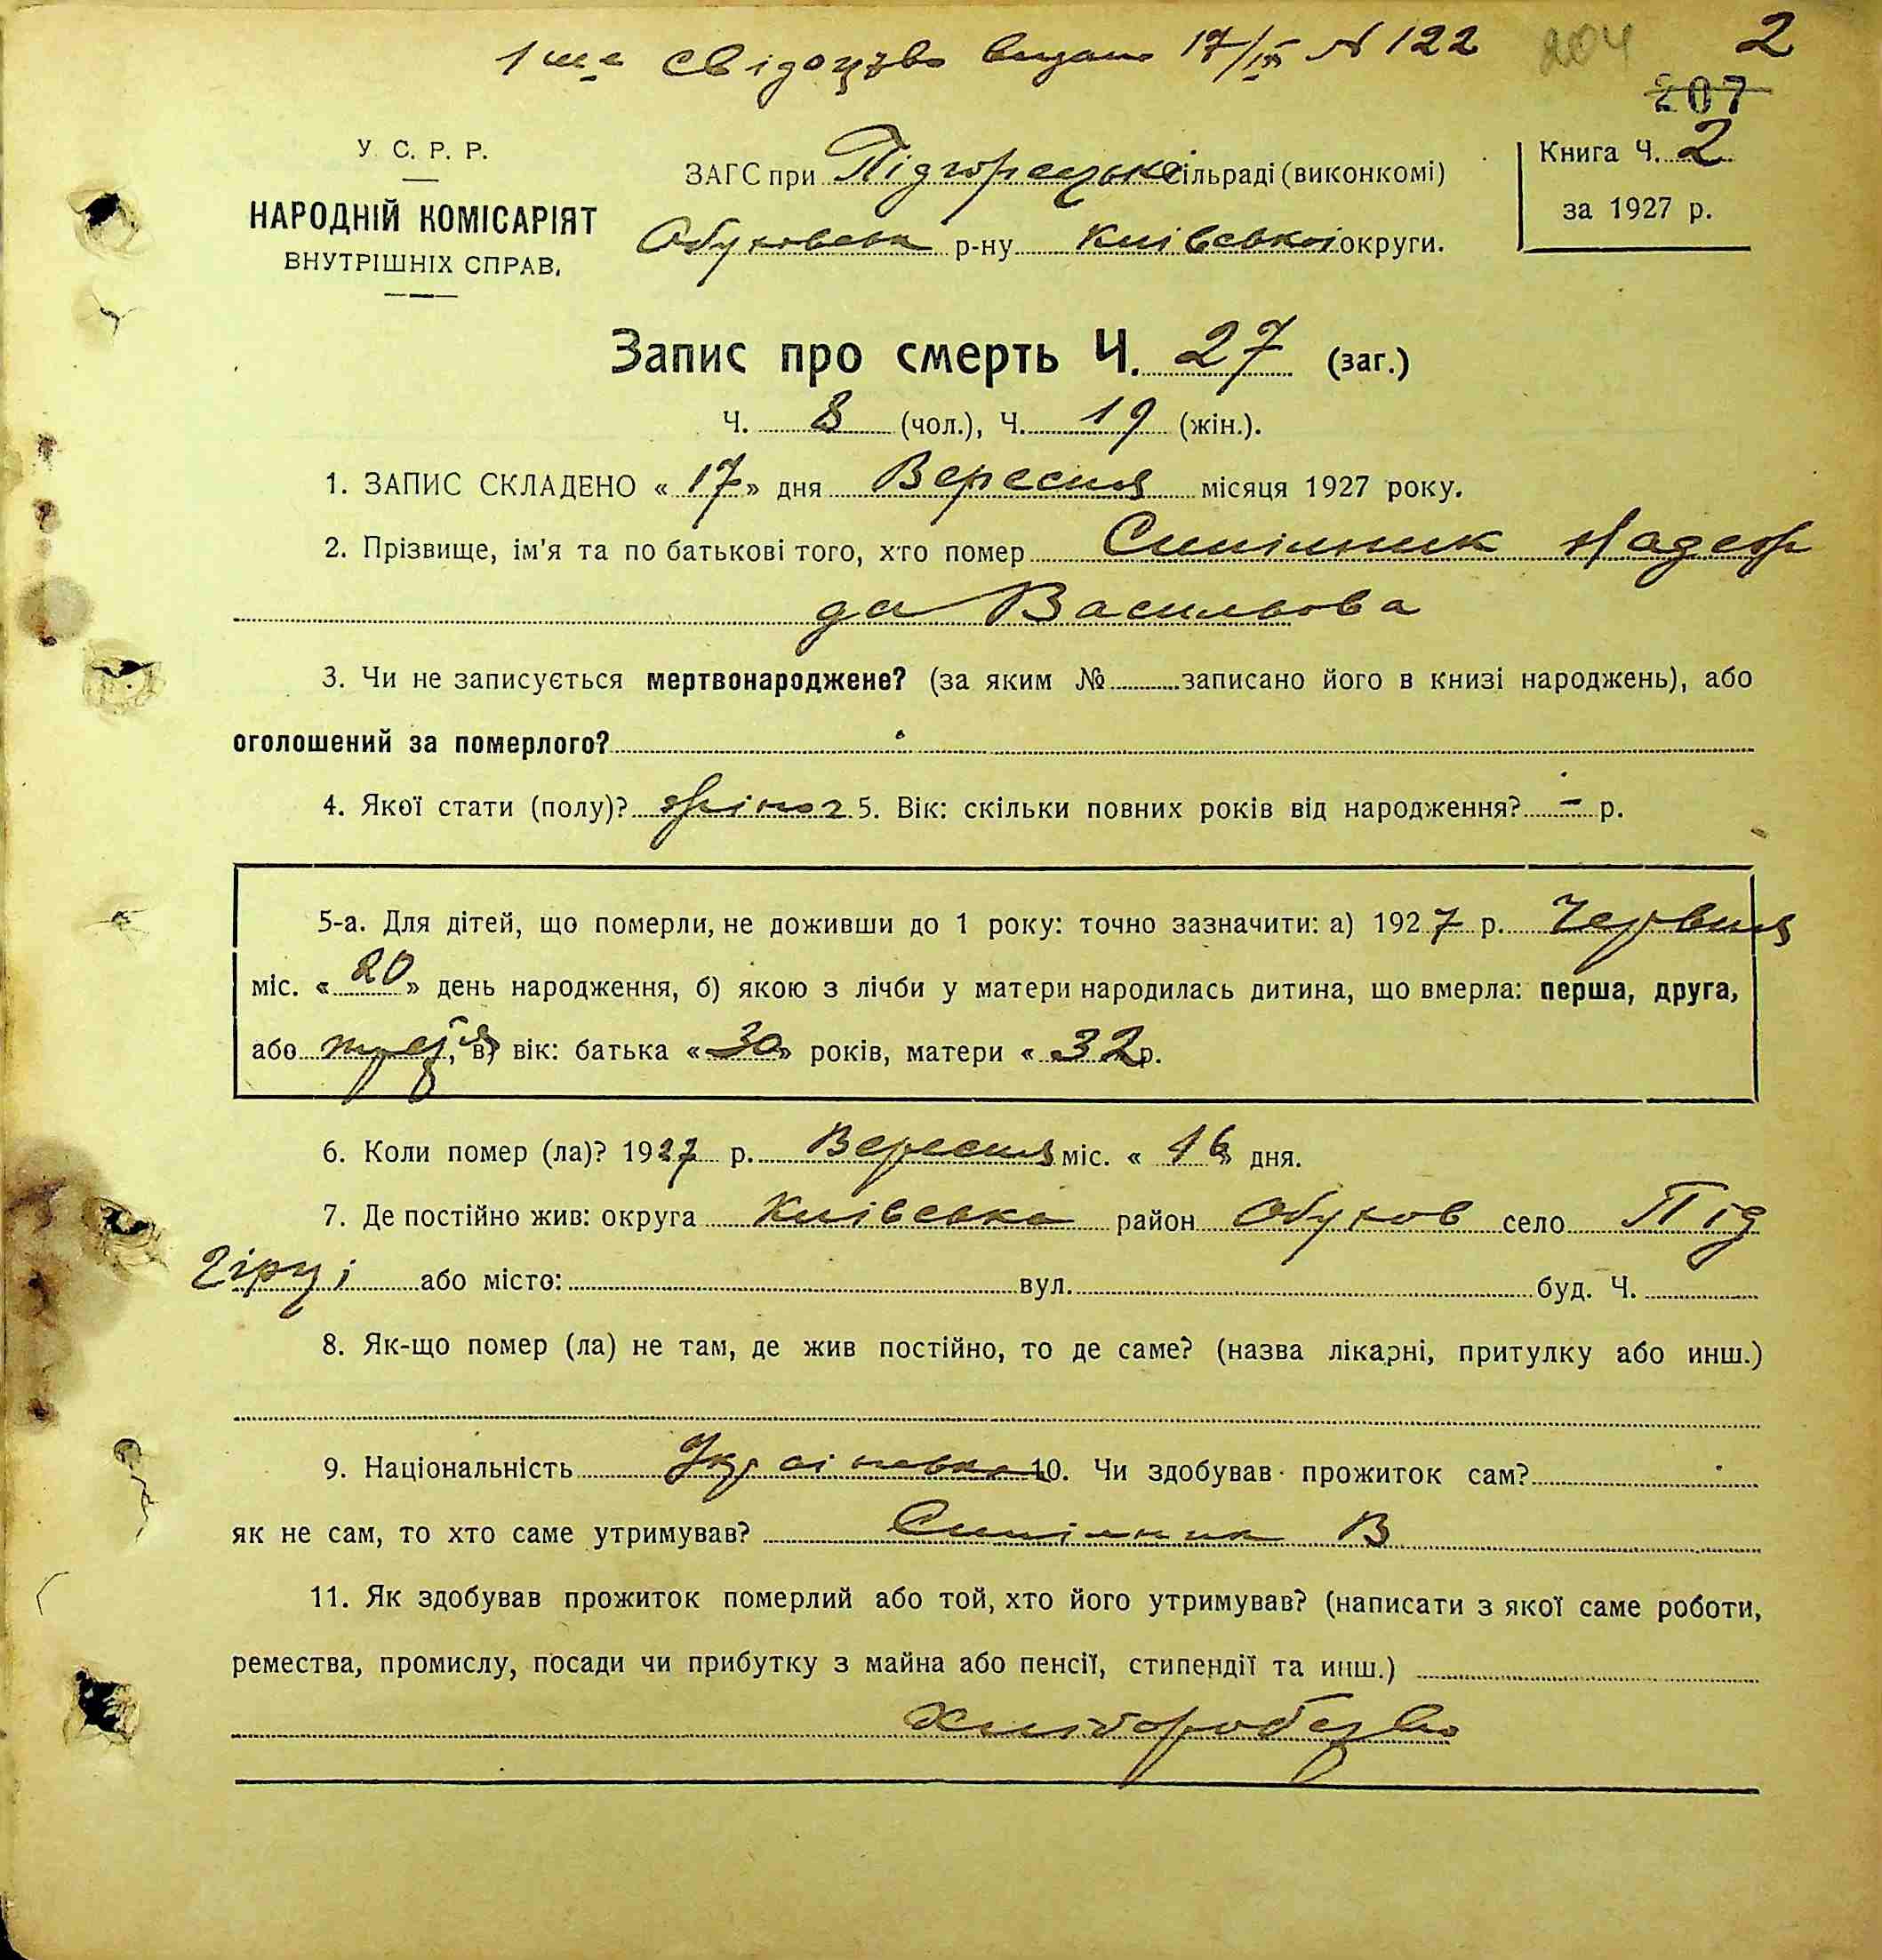 1ше свідоцтво видано 17/IX № 122 204 2
207
У. С. Р. Р.
НАРОДНІЙ КОМІСАРІЯТ
ВНУТРІШНІХ СПРАВ.
ЗАГС при Підгорецькі сільраді (виконкомі)
Обуховськ р-ну Київської округи.
Книга Ч. 2
за 1927 р.
Запис про смерть Ч. 27 (заг.)
Ч. 8 (чол.), Ч. 19 (жін.).
1. ЗАПИС СКЛАДЕНО « 17 » дня Вересня місяця 1927 року.
2. Прізвище, ім'я та по батькові того, хто помер
да Васильова
3. Чи не записується мертвонароджене? (за яким № записано його в книзі народжень), або
оголошений за померлого?
4. Якої стати (полу)? жіноч 5. Вік: скільки повних років від народження? – р.
5-а. Для дітей, що померли, не доживши до 1 року: точно зазначити: а) 1927 р. Червня
міс. « 20 » день народження, б) якою з лічби у матери народилась дитина, що вмерла: перша, друга,
або третя, в) вік: батька « 30 » років, матери « 32 р.
6. Коли помер (ла)? 1927 р. Вересня міс. « 16 » дня.
7. Де постійно жив: округа Київська район Обухов село Під
гірці або місто: вул. буд. Ч.
8. Як-що помер (ла) не там, де жив постійно, то де саме? (назва лікарні, притулку або инш.)
9. Національність Українська 10. Чи здобував прожиток сам?
як не сам, то хто саме утримував? В
11. Як здобував прожиток померлий або той, хто його утримував? (написати з якої саме роботи,
ремества, промислу, посади чи прибутку з майна або пенсії, стипендії та инш.)
Хліборобство